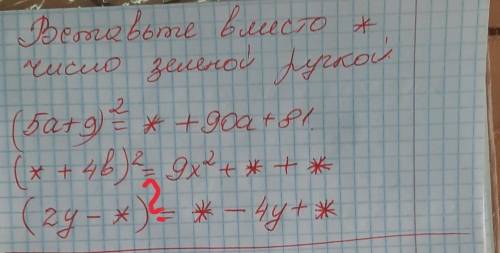 Вставьте вместо *
число зеленой ручкой.
(5a+9)²= * +90a+81.
(* + 4b)²= 9x²+ * + *
(2y - *)²= * - 4y + *